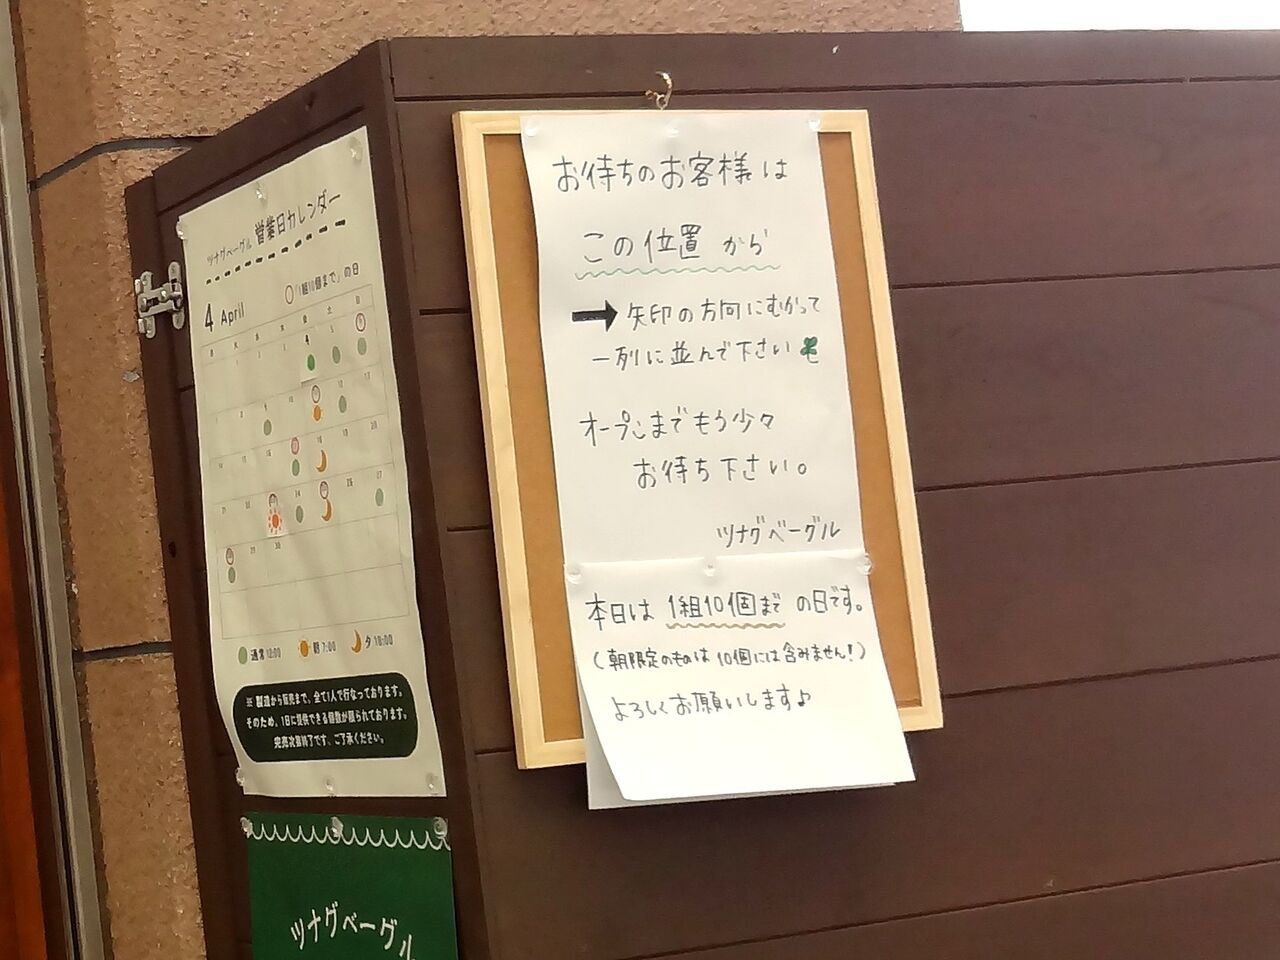 ツナグベーグル 営業日カレンダー
4 April
「1組10個まで」の日
月 火 水 木 金 土 日
通常 12:00
朝 7:00
夕 18:00
※ 製造から販売まで、全て1人で行なっております。
そのため、1日に提供できる個数が限られております。
完売次第終了です、ご了承ください。
ツナグベーグル
お待ちのお客様は
この位置から
➡矢印の方向にむかって
一列に並んで下さい
オープンまでもう少々
お待ち下さい。
ツナグベーグル
本日は 1組10個まで の日です。
(朝限定のものは 10個には含みません!)
よろしくお願いします♪